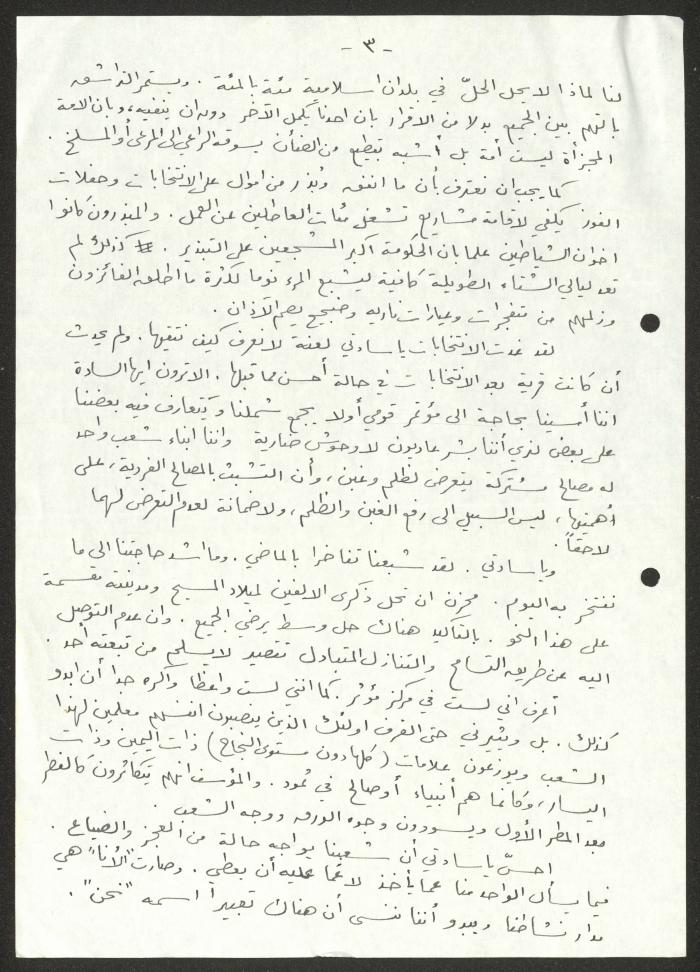 - ٣ -
لنا لماذا لا يحل الحلّ في بلدان اسلامية مئة بالمئة . ويستمر التراشق
بالتهم بين الجميع بدلا من الاقرار بان احدنا يكمل الآخر دون ان ينفيه ، وبان الامة
المجزأة ليست أمة بل أشبه بقطيع من الضأن يسوقه الراعي الى المرعى أو المسلخ .
كما يجب ان نعترف بأن ما انفق وبُذر من اموال على الانتخابات وحفلات
الفوز يكفي لاقامة مشاريع تشغل مئات العاطلين عن العمل . والمبذرون كانوا
اخوان الشياطين علما بان الحكومة اكبر المشجعين على التبذير . كذلك لم
تعد ليالي الشتاء الطويلة كافية ليشبع المرء نوما لكثرة ما اطلقه الفائزون
وزلمهم من متفجرات وعيارات نارية وضجيج يصم الآذان .
لقد غدت الانتخابات يا سادتي لعنة لا نعرف كيف نتقيها . ولم يحدث
أن كانت قرية بعد الانتخابات في حالة أحسن مما قبلها . الا ترون ايها السادة
اننا أمسينا بحاجة الى مؤتمر قومي أولا يجمع شملنا ويتعارف فيه بعضنا
على بعض لنرى أننا بشر عاديون لا وحوش ضارية واننا ابناء شعب واحد
له مصالح مشتركة يتعرض لظلم وغبن ، وأن التشبث بالمصالح الفردية ، على
أهميتها ، ليس السبيل الى رفع الغبن والظلم ، ولا ضمانة لعدم التعرض لهما
لاحقاً .
ويا سادتي . لقد شبعنا تفاخرا بالماضي . وما أشد حاجتنا الى ما
نفتخر به اليوم . محزن ان تحل ذكرى الالفين لميلاد المسيح ومدينته مقسمة
على هذا النحو . بالتأكيد هناك حل وسط يرضي الجميع . وان عدم التوصل
اليه عن طريق التسامح والتنازل المتبادل تقصير لا يسلم من تبعته أحد .
أعرف اني لست في مركز مؤثر . كما انني لست واعظا واكره جدا أن ابدو
كذلك . بل ويثيرني حتى القرف اولئك الذين ينصبون انفسهم معلمين لهذا
الشعب ويوزعون علامات ( كلها دون مستوى النجاح ) ذات اليمين وذات
اليسار ، وكأنما هم أنبياء أو صالح في ثمود . والمؤسف انهم يتكاثرون كالفطر
بعد المطر الأول ويسودون وجوه الورق ووجه الشعب .
احسّ يا سادتي أن شعبنا يواجه حالة من العجز والضياع .
فيما يسأل الواحد منا عما يأخذ لا عما عليه أن يعطي . وصارت "الأنا" هي
مدار نشاطنا ويبدو أننا ننسى أن هناك تعبيرا اسمه "نحن" .